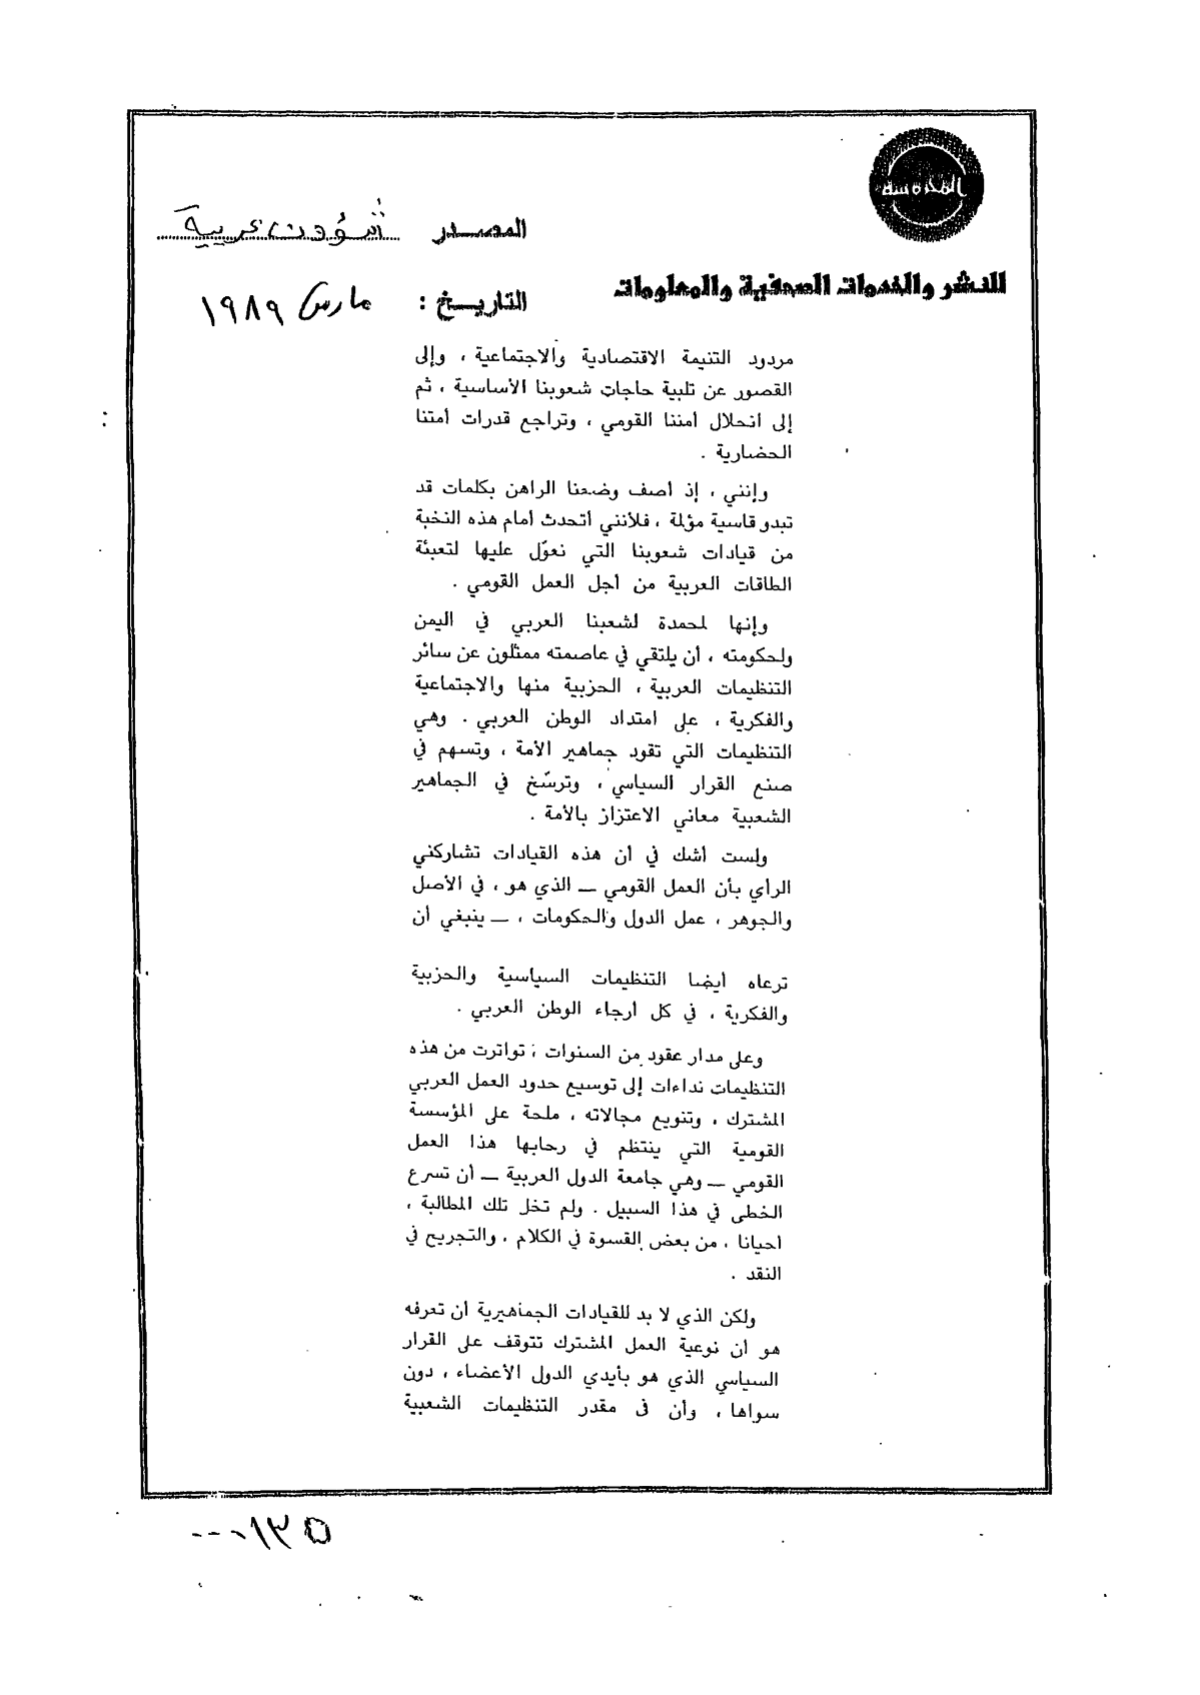 المحروسة
للنشر والخدمات الصحفية والمعلومات
المصدر شؤون عربية
التاريخ : مارس ١٩٨٩
مردود التنيمة الاقتصادية والاجتماعية ، وإلى
القصور عن تلبية حاجات شعوبنا الأساسية ، ثم
إلى انحلال أمننا القومي ، وتراجع قدرات أمتنا
الحضارية .
وإنني ، إذ أصف وضعنا الراهن بكلمات قد
تبدو قاسية مؤلمة ، فلأنني أتحدث أمام هذه النخبة
من قيادات شعوبنا التي نعوّل عليها لتعبئة
الطاقات العربية من أجل العمل القومي .
وإنها لمحمدة لشعبنا العربي في اليمن
ولحكومته ، أن يلتقي في عاصمته ممثلون عن سائر
التنظيمات العربية ، الحزبية منها والاجتماعية
والفكرية ، على امتداد الوطن العربي . وهي
التنظيمات التي تقود جماهير الأمة ، وتسهم في
صنع القرار السياسي ، وترسّخ في الجماهير
الشعبية معاني الاعتزاز بالأمة .
ولست أشك في أن هذه القيادات تشاركني
الرأي بأن العمل القومي ــ الذي هو ، في الأصل
والجوهر ، عمل الدول والحكومات ، ــ ينبغي أن
ترعاه أيضا التنظيمات السياسية والحزبية
والفكرية ، في كل أرجاء الوطن العربي .
وعلى مدار عقود من السنوات ، تواترت من هذه
التنظيمات نداءات إلى توسيع حدود العمل العربي
المشترك ، وتنويع مجالاته ، ملحة على المؤسسة
القومية التي ينتظم في رحابها هذا العمل
القومي ــ وهي جامعة الدول العربية ــ أن تسرع
الخطى في هذا السبيل . ولم تخل تلك المطالبة ،
أحيانا ، من بعض القسوة في الكلام ، والتجريح في
النقد .
ولكن الذي لا بد للقيادات الجماهيرية أن تعرفه
هو أن نوعية العمل المشترك تتوقف على القرار
السياسي الذي هو بأيدي الدول الأعضاء ، دون
سواها ، وأن في مقدر التنظيمات الشعبية
١٣٥